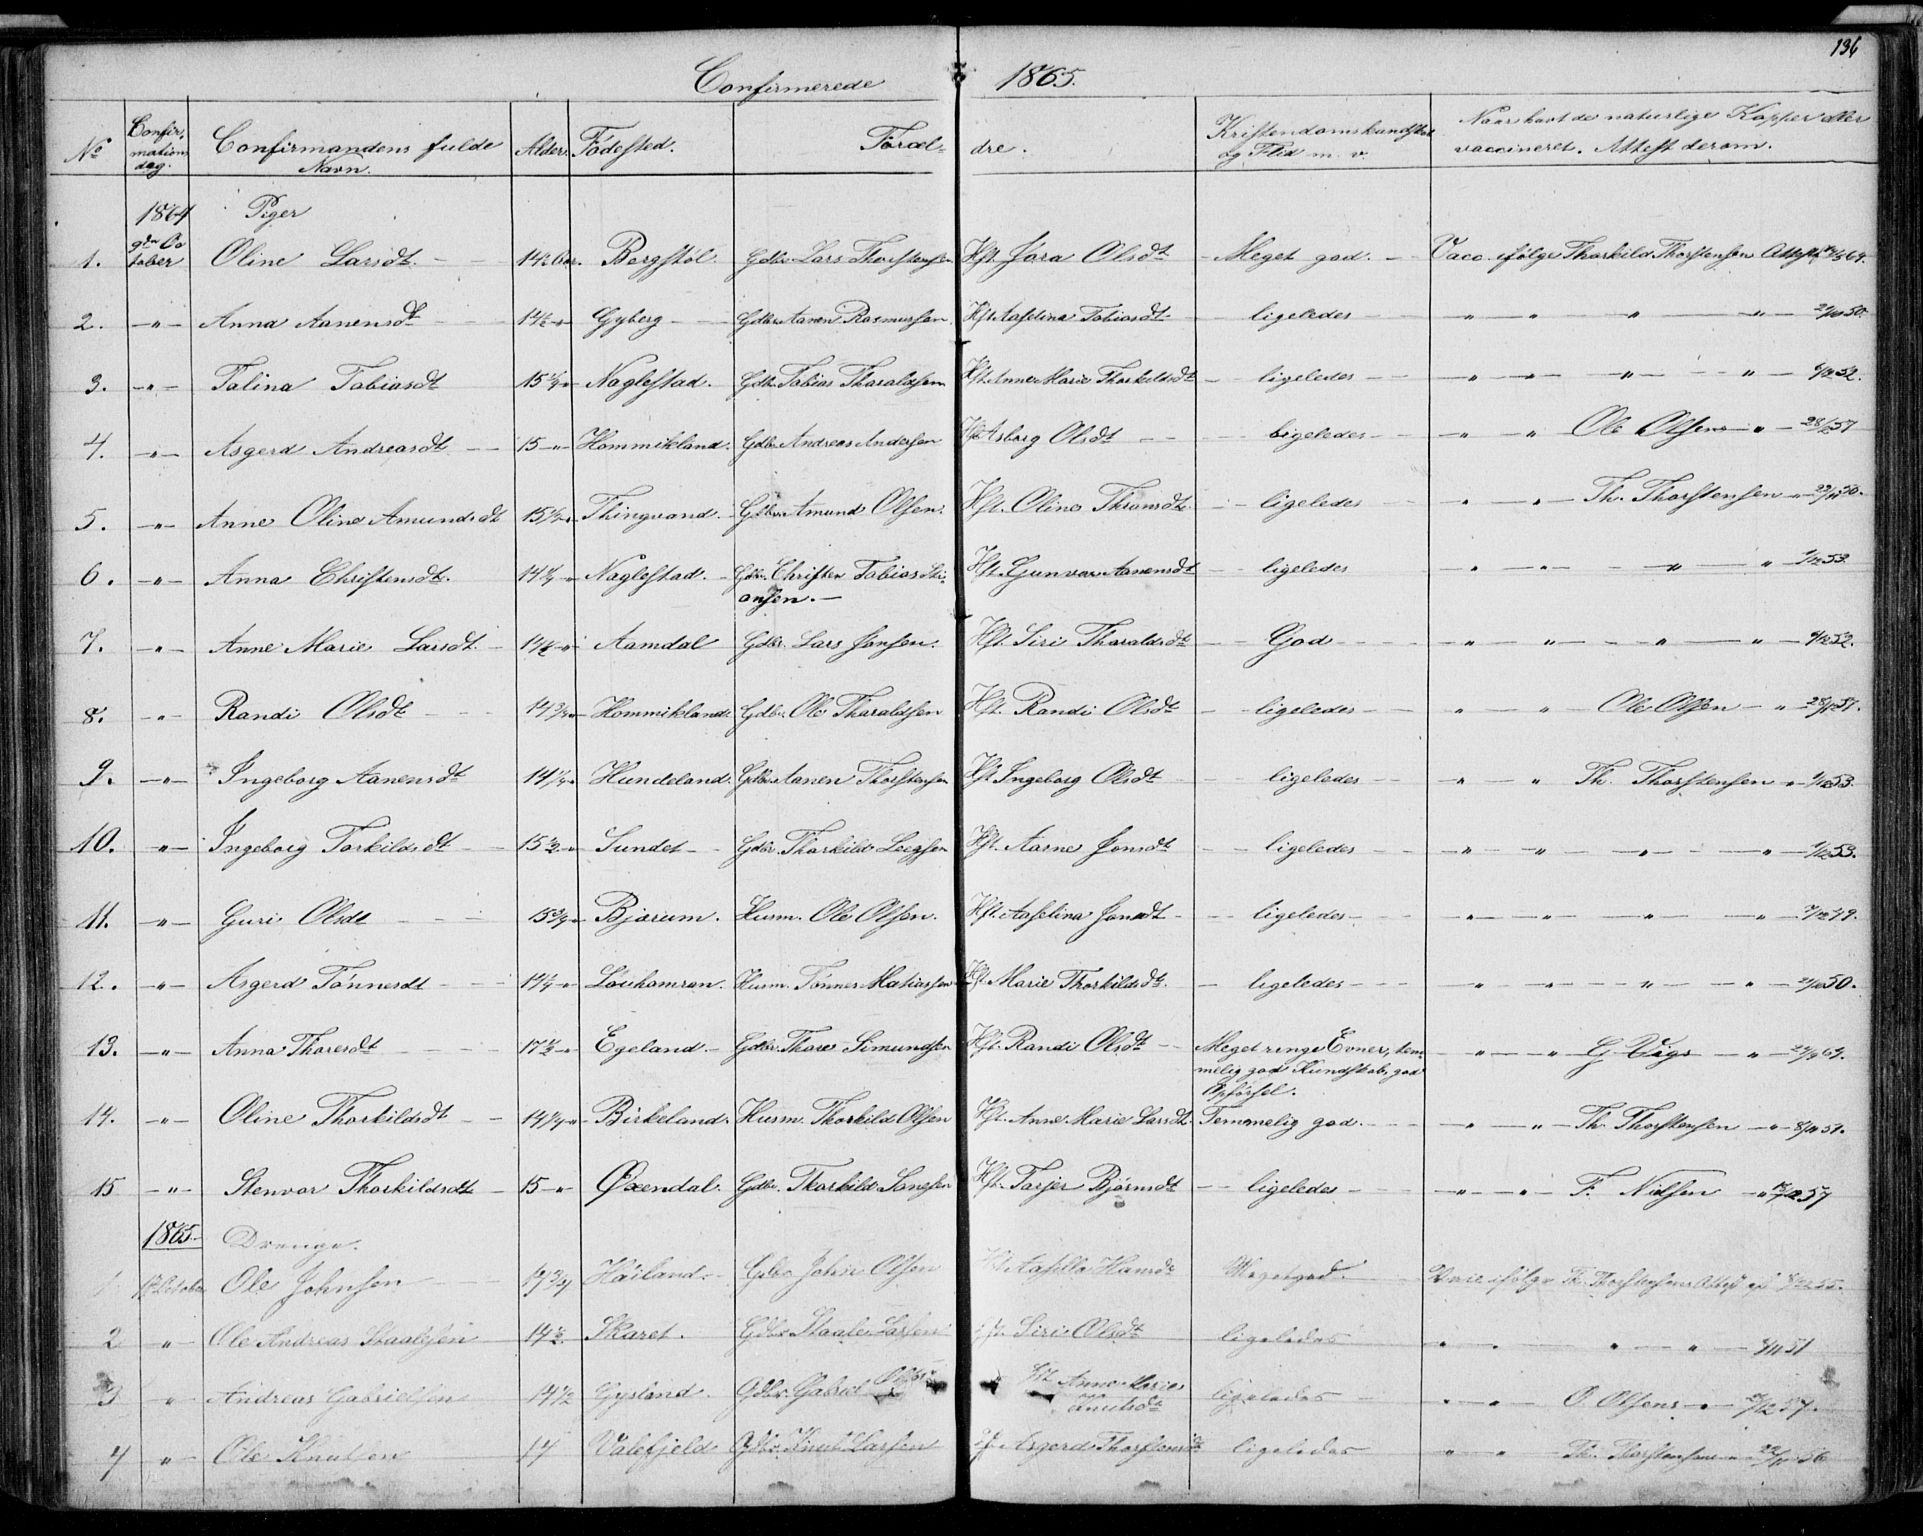 136
Confirmerede 1865.
No Confirmations dag. Confirmandens fulde Navn. Alder. Födested. Foræl- dre. Kristendomskundskab og Flid m. v. Naar havt de naturlige Kopper eller vaccineret. Attest derom.
1864 Piger
1. 9de October Oline Larsdt. 14 Bergstöl. Gdbr. Lars Thorstensen Hst. Jøra Olsdt Meget god. Vacc. ifölge Thorkild Thorstensen Attest
2. -"- Anna Aanensdt 14½ -"- Gyberg Gdbr. Aanen Rasmussen Hst. Aaselina Tobiasdt ligeledes " " " " 50.
3. -"- Talina Tobiasdt 15 -"- Naglestad. Gdbr. Tobias Tharaldsen Hst. Anne Marie Thorkildsdt ligeledes " " " " 52.
4. -"- Asgerd Andreasdt 15 -"- Hommikland. Gdbr. Andreas Andersen Hst. Asborg Olsdt ligeledes " " Ole Olsens " 28/12 57
5. -"- Anne Oline Amundsdt 15½ -"- Thingvand. Gdbr. Amund Olsen. Hst. Oline Thronsdt. ligeledes " " Th. Thorstensen " 50.
6. -"- Anna Christensdt. 14 -"- Naglestad. Gdbr. Christen Tobias Sti-
ansen. Hst. Gunvor Aanensdt ligeledes " " " " 53.
7. -"- Anne Marie Larsdt. 14½ -"- Aamdal Gdbr. Lars Jonsen. Hst. Siri Tharaldsdt God " " " " 52.
8. -"- Randi Olsdt 14¾ -"- Hommikland. Gdbr. Ole Tharaldsen Hst. Randi Olsdt ligeledes " " Ole Olsen " 28/12 57.
9. -"- Ingeborg Aanensdt 14 -"- Hundeland. Gdbr. Aanen Thorstensen Hst. Ingeborg Olsdt ligeledes " " Th. Thorstensen " 53.
10. -"- Ingeborg Torkildsdt 15 -"- Sundet Gdbr. Thorkild Hst. Aasne Jonsdt ligeledes " " " " 53.
11. -"- Guri Olsdt 15¾ -"- Bjærum. Husm. Ole Olsen. Hst. Aaselina Jonsdt ligeledes " " " " 49.
12. -"- Asgerd Tönnesdt 14 -"- Husm. Tönnes Matiassen Hst. Marie Thorkildsdt. ligeledes " " " " 50.
13. -"- Anna Thoresdt 17½ -"- Egeland. Gdbr. Thore Simundsen Hst. Randi Olsdt Meget ringe Evner, tem-
melig god Kundskab, god
Opförsel. " " G. "
14. -"- Oline Thorkildsdt 14 -"- Birkeland. Husm. Thorkild Olsen Hst. Anne Marie Larsdt. Temmelig god. " " Th. Thorstensen " 8/11 51.
15 -"- Stenvor Thorkildsdt 15 -"- Øxendal. Gdbr. Thorkild Hst. Tarjer Björnsdt ligeledes " " F. Nilsen " 57
1865. Drenge.
1 October Ole Johnsen 14¾ Häiland. Gdbr. John Olsen Hst. Aasilla Hansdt Meget god. Vacc. ifölge Th. Thorstensens Attest af 55.
2 " Ole Andreas Staalesen 14½ Skaret. Gdbr. Staale Larsen Hst. Siri Olsdt ligeledes " " " " 8/11 51
3 " Andreas Gabrielsen 14½ Gysland. Gdbr. Gabriel Olsen Hst. Anne Marie
Knutsdt ligeledes " " O. Olsens " 57.
4 " Ole Knutsen 14 Valefjeld Gdbr. Knut Larsen Hst. Asgerd Thorstensdt ligeledes " " Th. Thorstensens " 56